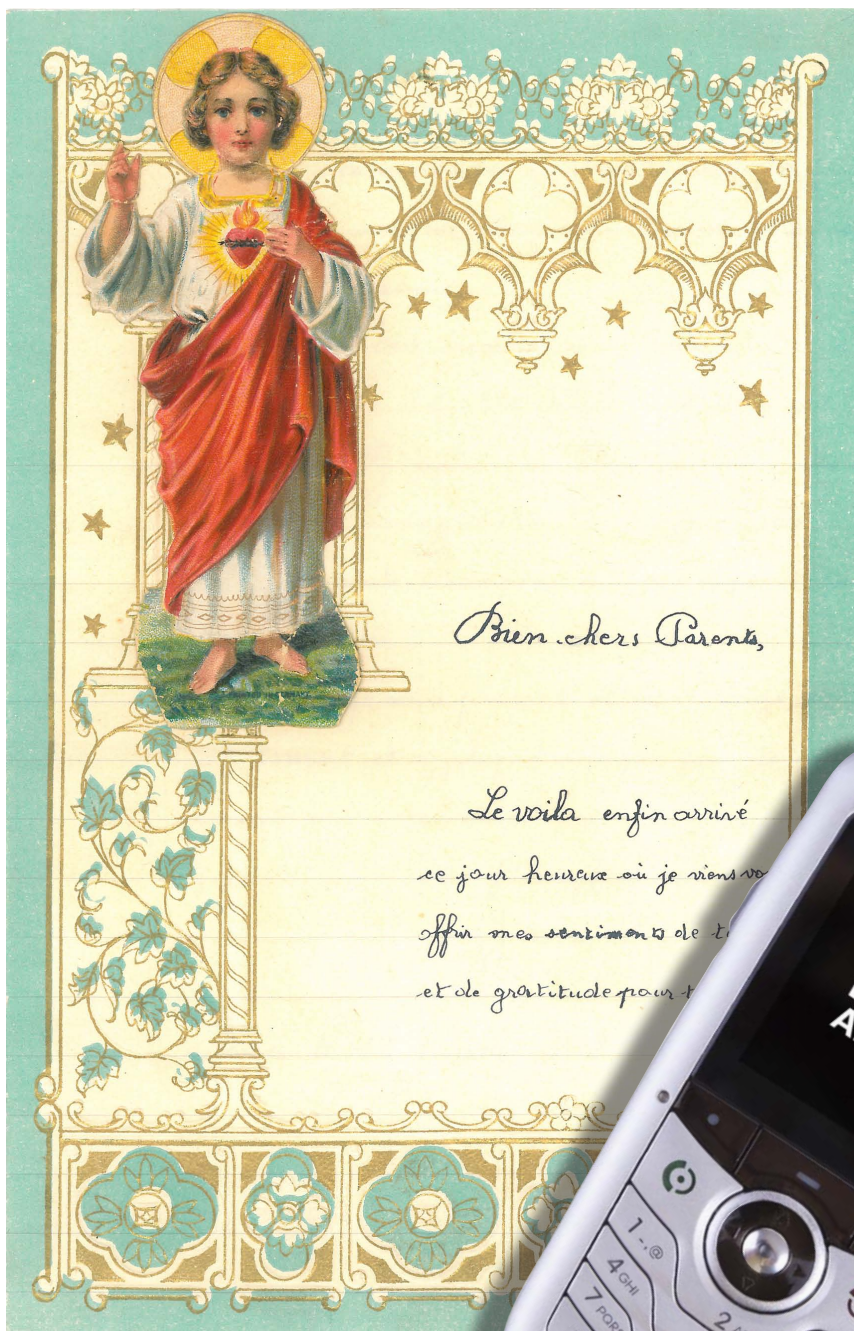 Bien chers Parents,
Le voila enfin arrivé
ce jour heureux où je viens
offrir mes sentiments de
et de gratitude pour
A
1 -.@
4 GHI
7 PQR
2